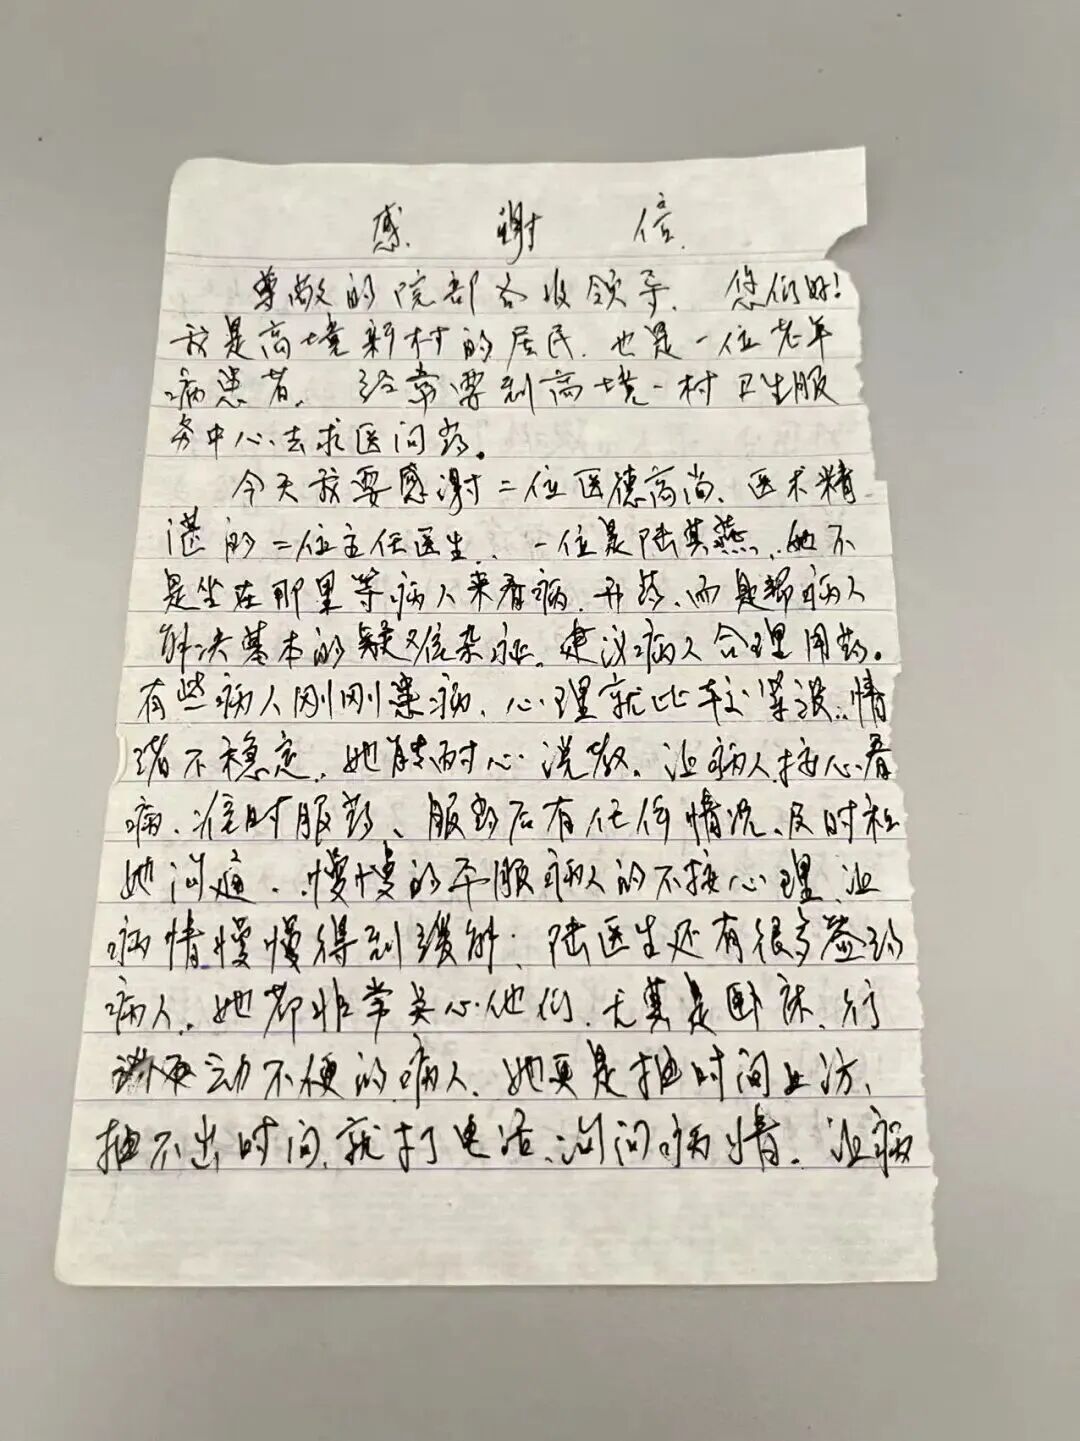 感谢信
尊敬的院部各级领导、您们好!
我是高境新村的居民、也是一位老年
病患者、经常要到高境一村卫生服
务中心去求医问药。
今天我要感谢二位医德高尚、医术精
湛的二位主任医生、一位是陆其燕、她不
是坐在那里等病人来看病、开药、而是帮病人
解决基本的疑难杂症、建议病人合理用药。
有些病人刚刚染病、心理就比较紧张、情
绪不稳定、她能耐心说教、让病人接心看
病、准时服药、服药后有任何情况、及时和
她沟通、慢慢的平服病人的不接心理、让
病情慢慢得到缓解、陆医生还有很多签约
病人、她都非常关心他们、尤其是卧床、行
动不便的病人、她更是抽时间上访、
抽不出时间、就打电话、询问病情、让病